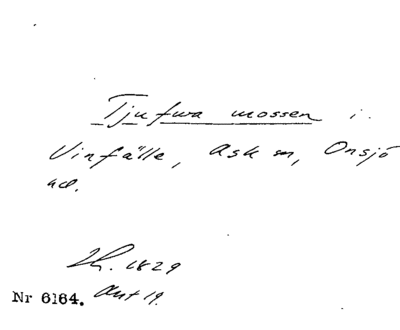 Tjufwa mossen i
Vinfälle, Ask sn, Onsjö
hd.
1829
Nr 6164. Akt 19.